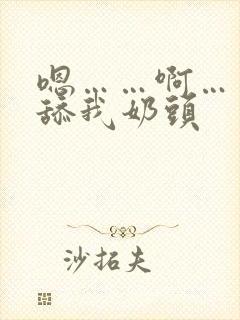 嗯……啊…
舔我奶頭
沙拓夫